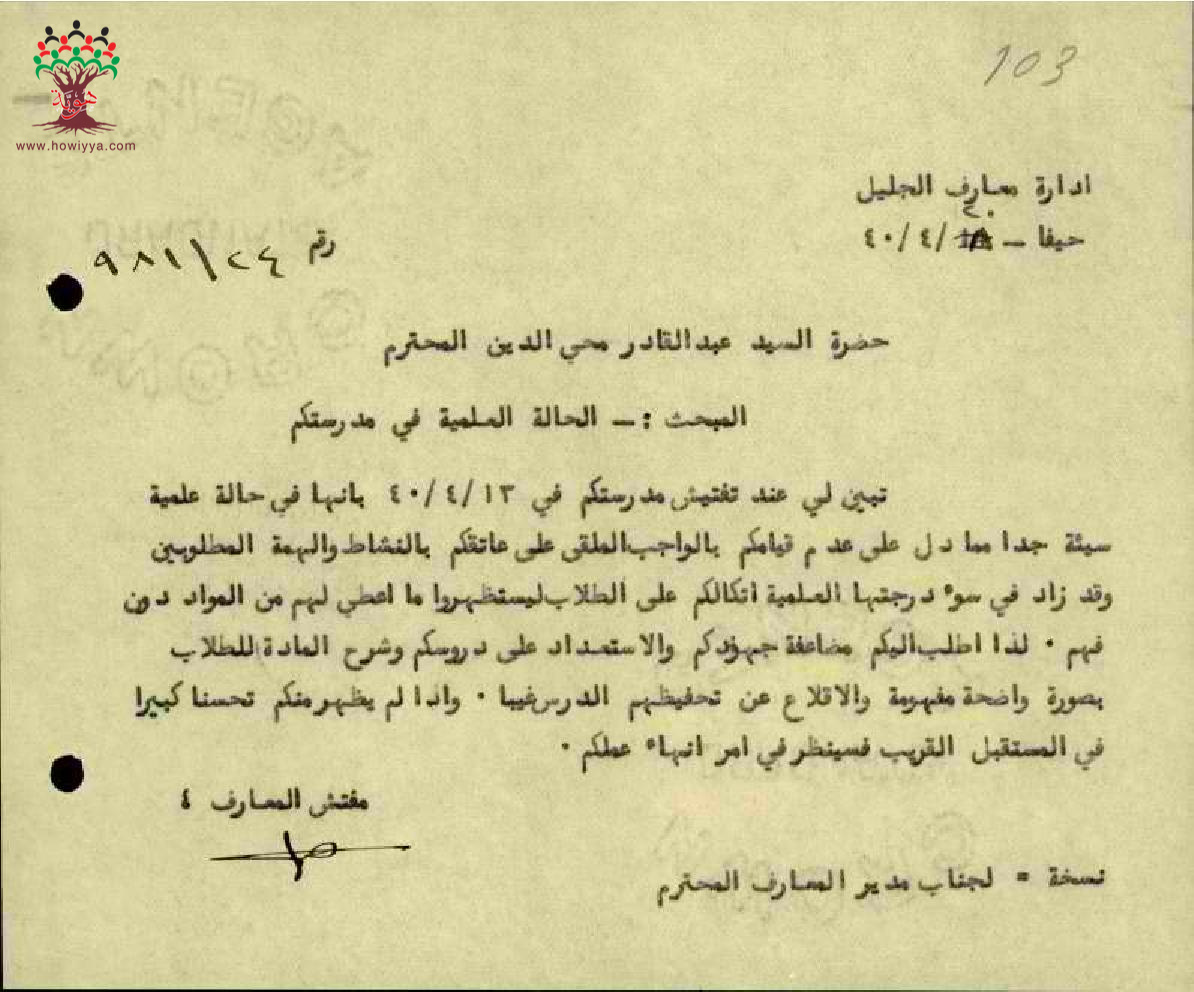 هوية
www.howiyya.com
103
ادارة معارف الجليل
٢٠
حيفا – ١٨/٤/٤٠
رقم ٩٨١/٢٤
حضرة السيد عبدالقادر محي الدين المحترم
المبحث :– الحالة العلمية في مدرستكم
تبين لي عند تفتيش مدرستكم في ١٣/٤/٤٠ بانها في حالة علمية
سيئة جدا مما دل على عدم قيامكم بالواجب الملقى على عاتقكم بالنشاط والهمة المطلوبين
وقد زاد في سوء درجتها العلمية اتكالكم على الطلاب ليستظهروا ما اعطي لهم من المواد دون
فهم ٠ لذا اطلب اليكم مضاعفة جهؤدكم والاستعداد على دروسكم وشرح المادة للطلاب
بصورة واضحة مفهومة والاقلاع عن تحفيظهم الدرس غيبا ٠ واذا لم يظهر منكم تحسنا كبيرا
في المستقبل القريب فسينظر في امر انهاء عملكم ٠
مفتش المعارف ٤
نسخة = لجناب مدير المعارف المحترم